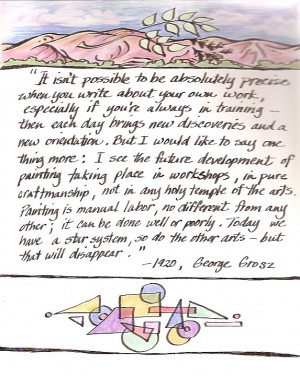 "It isn't possible to be absolutely precise
when you write about your own work,
especially if you're always in training —
then each day brings new discoveries and a
new orientation. But I would like to say one
thing more: I see the future development of
painting taking place in workshops, in pure
craftmanship, not in any holy temple of the arts.
Painting is manual labor, no different from any
other; it can be done well or poorly. Today we
have a star system, so do the other arts — but
that will disappear."
—1920, George Grosz